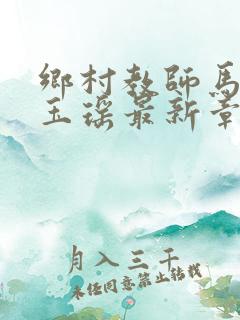 鄉村教師馬
玉瑤最新章
月入三千
未经同意禁止转载